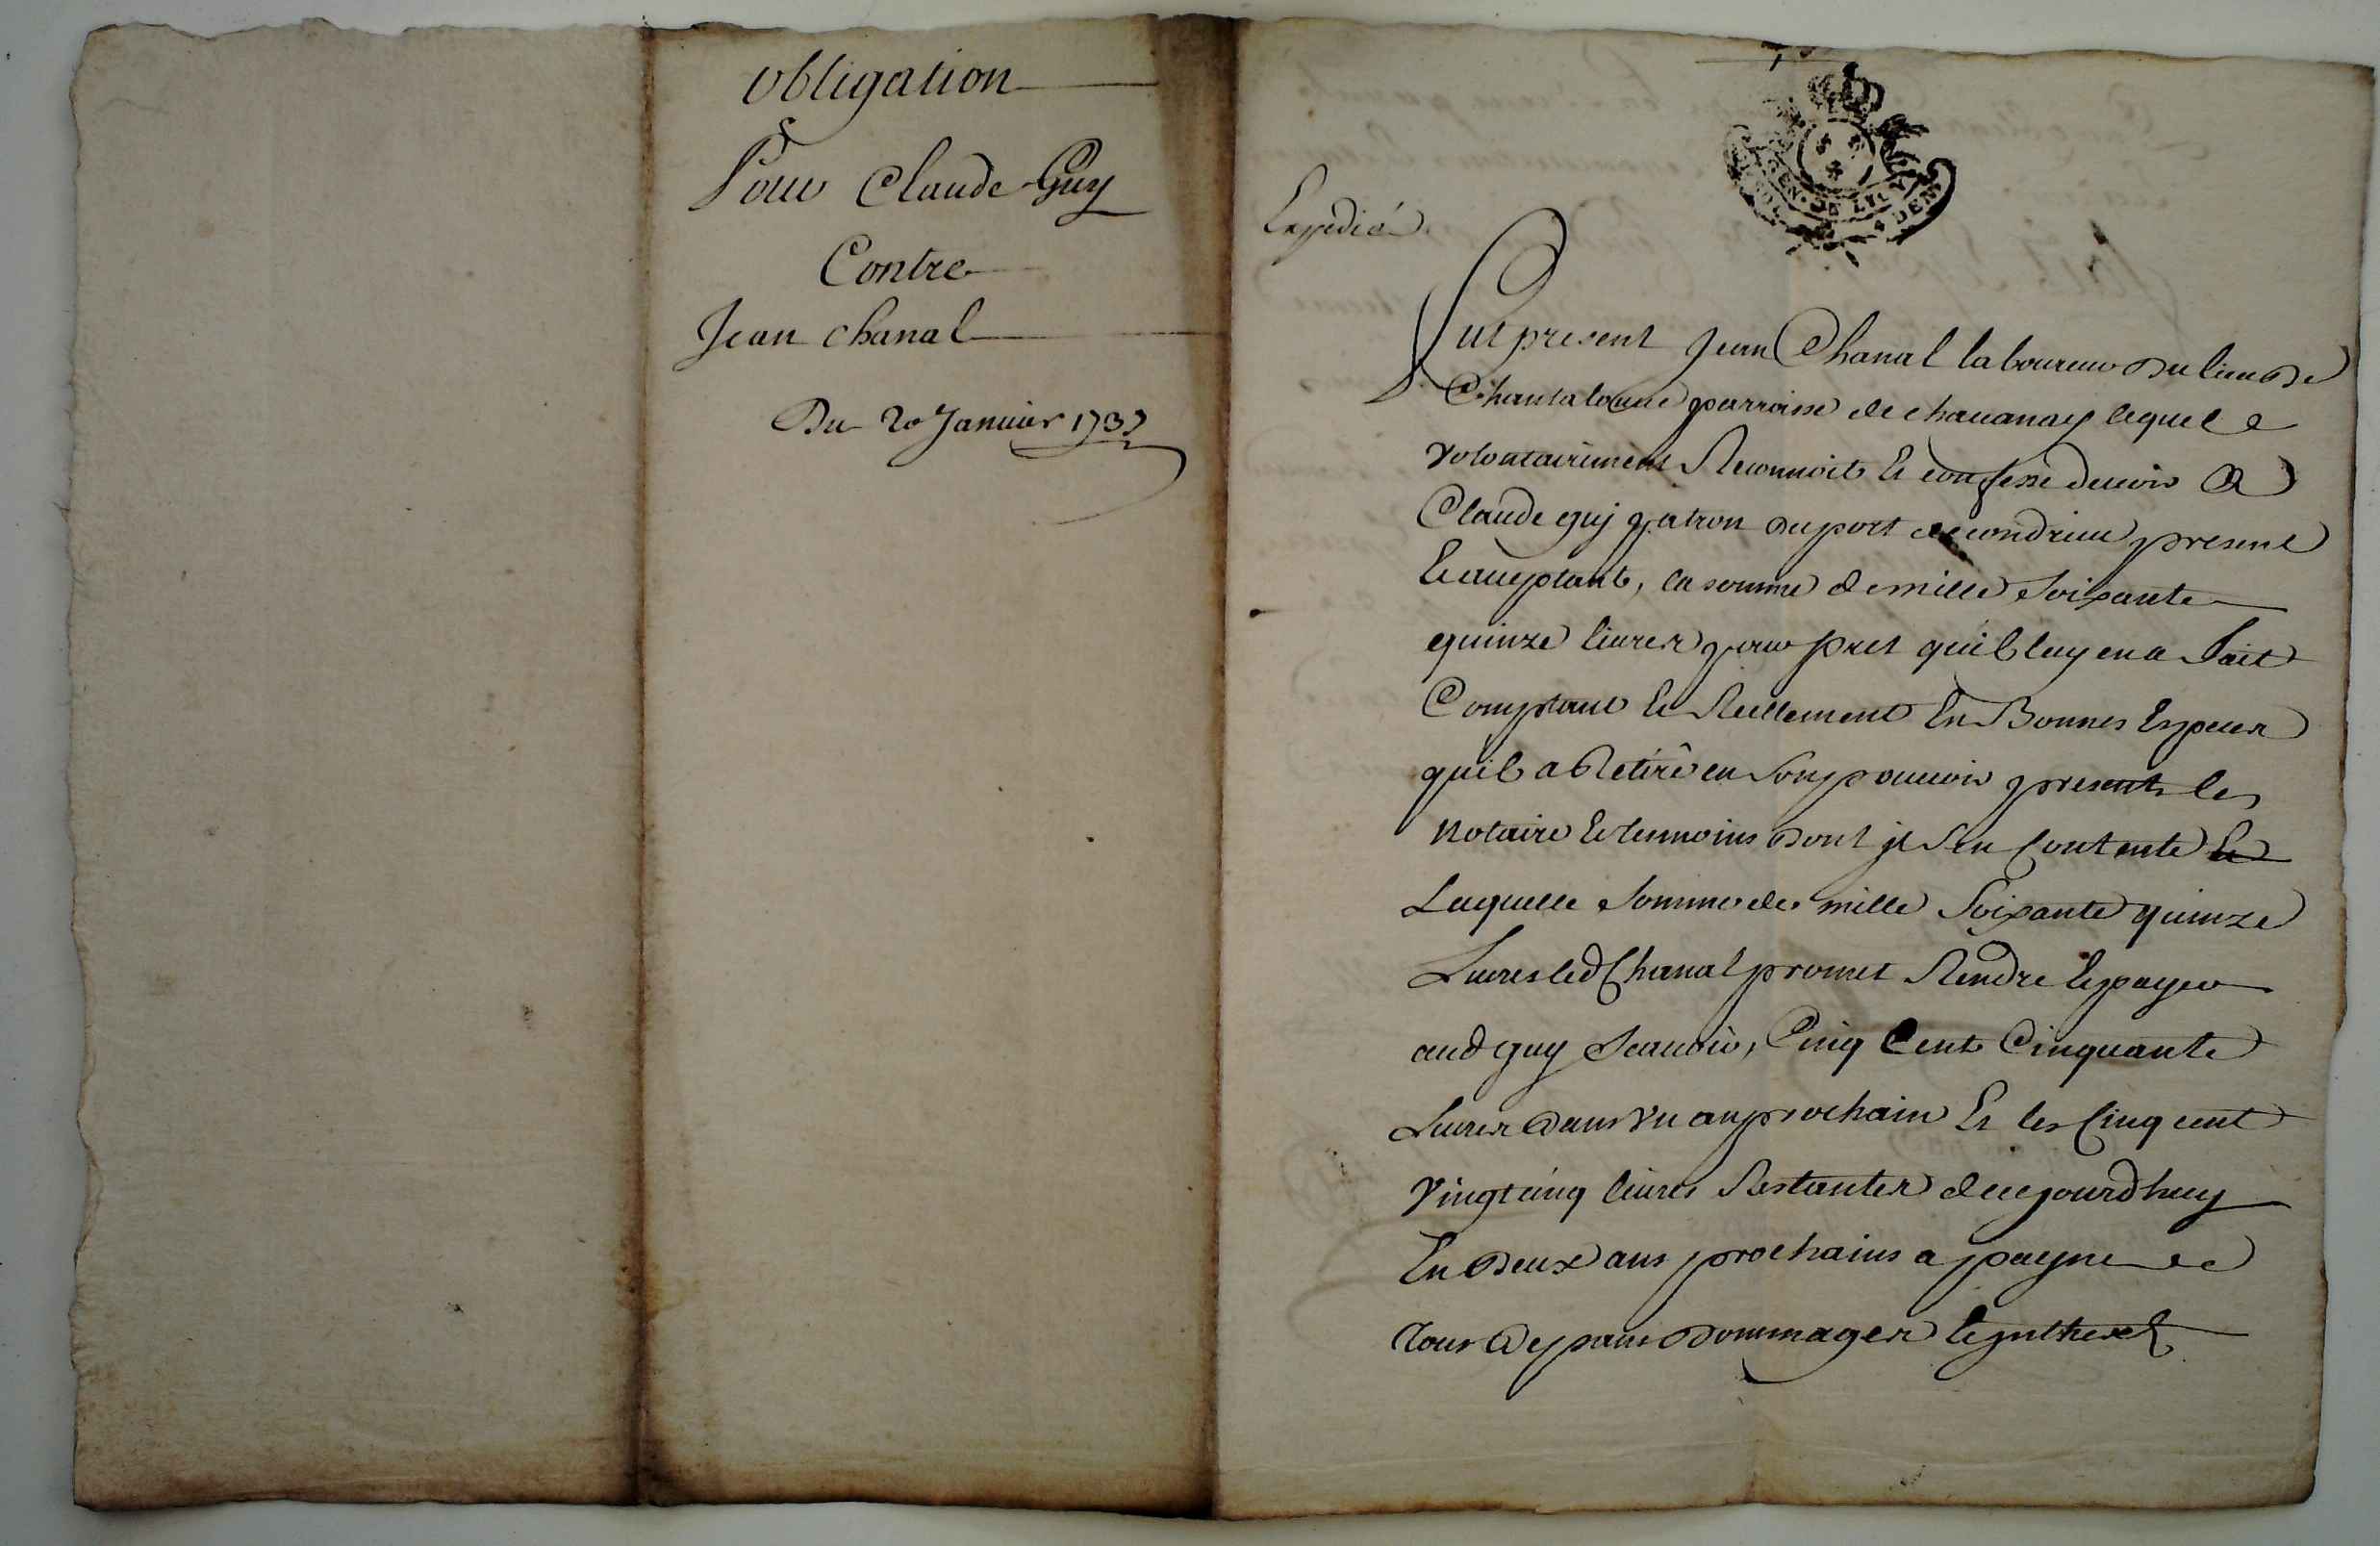 obligation
Pour Claude Guy
Contre
Jean chanal
Du 20 Janvier 1737
Expedié
GEN. DE LYON
Fut present Jean Chanal laboureur du lieu de
parroisse de chauanay lequel
volontairement Reconnoit Et confesse deuoir A
Claude guy patron du port de condrieu present
Et acceptant, la somme de mille soixante
quinze liures pour pret quil luy en a fait
Comptant Et Reellement En Bonnes Especes
quil a Retiré en son pouuoir presents les
notaire Et temoins dont jl sen contente Et
Laquelle somme de mille soixante quinze
Liures led Chanal promet Rendre Et payer
aud guy scauoir, Cinq Cent Cinquante
Liures dans vn an prochain Et les Cinq cent
vingt cinq liures Restantes de cejourdhuy
En deux ans prochains a payne de
tous depans dommages Et jntherets